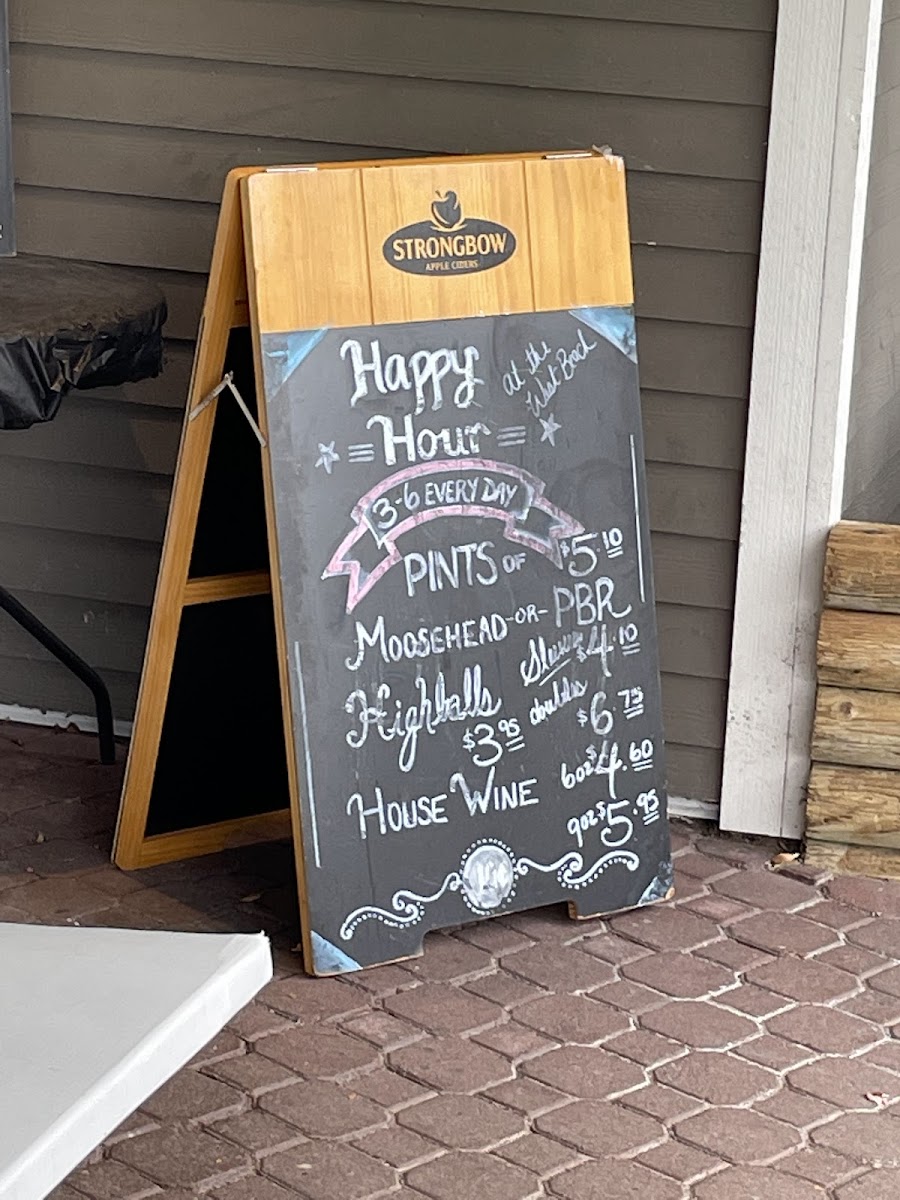 STRONGBOW
APPLE CIDERS
Happy
Hour
at the
West Beach
3-6 EVERY DAY
PINTS OF $5.10
MOOSEHEAD -OR- PBR
Sleeves $4.10
Highballs
$3.95
doubles $6.75
HOUSE WINE 6oz $4.60
9oz $5.95